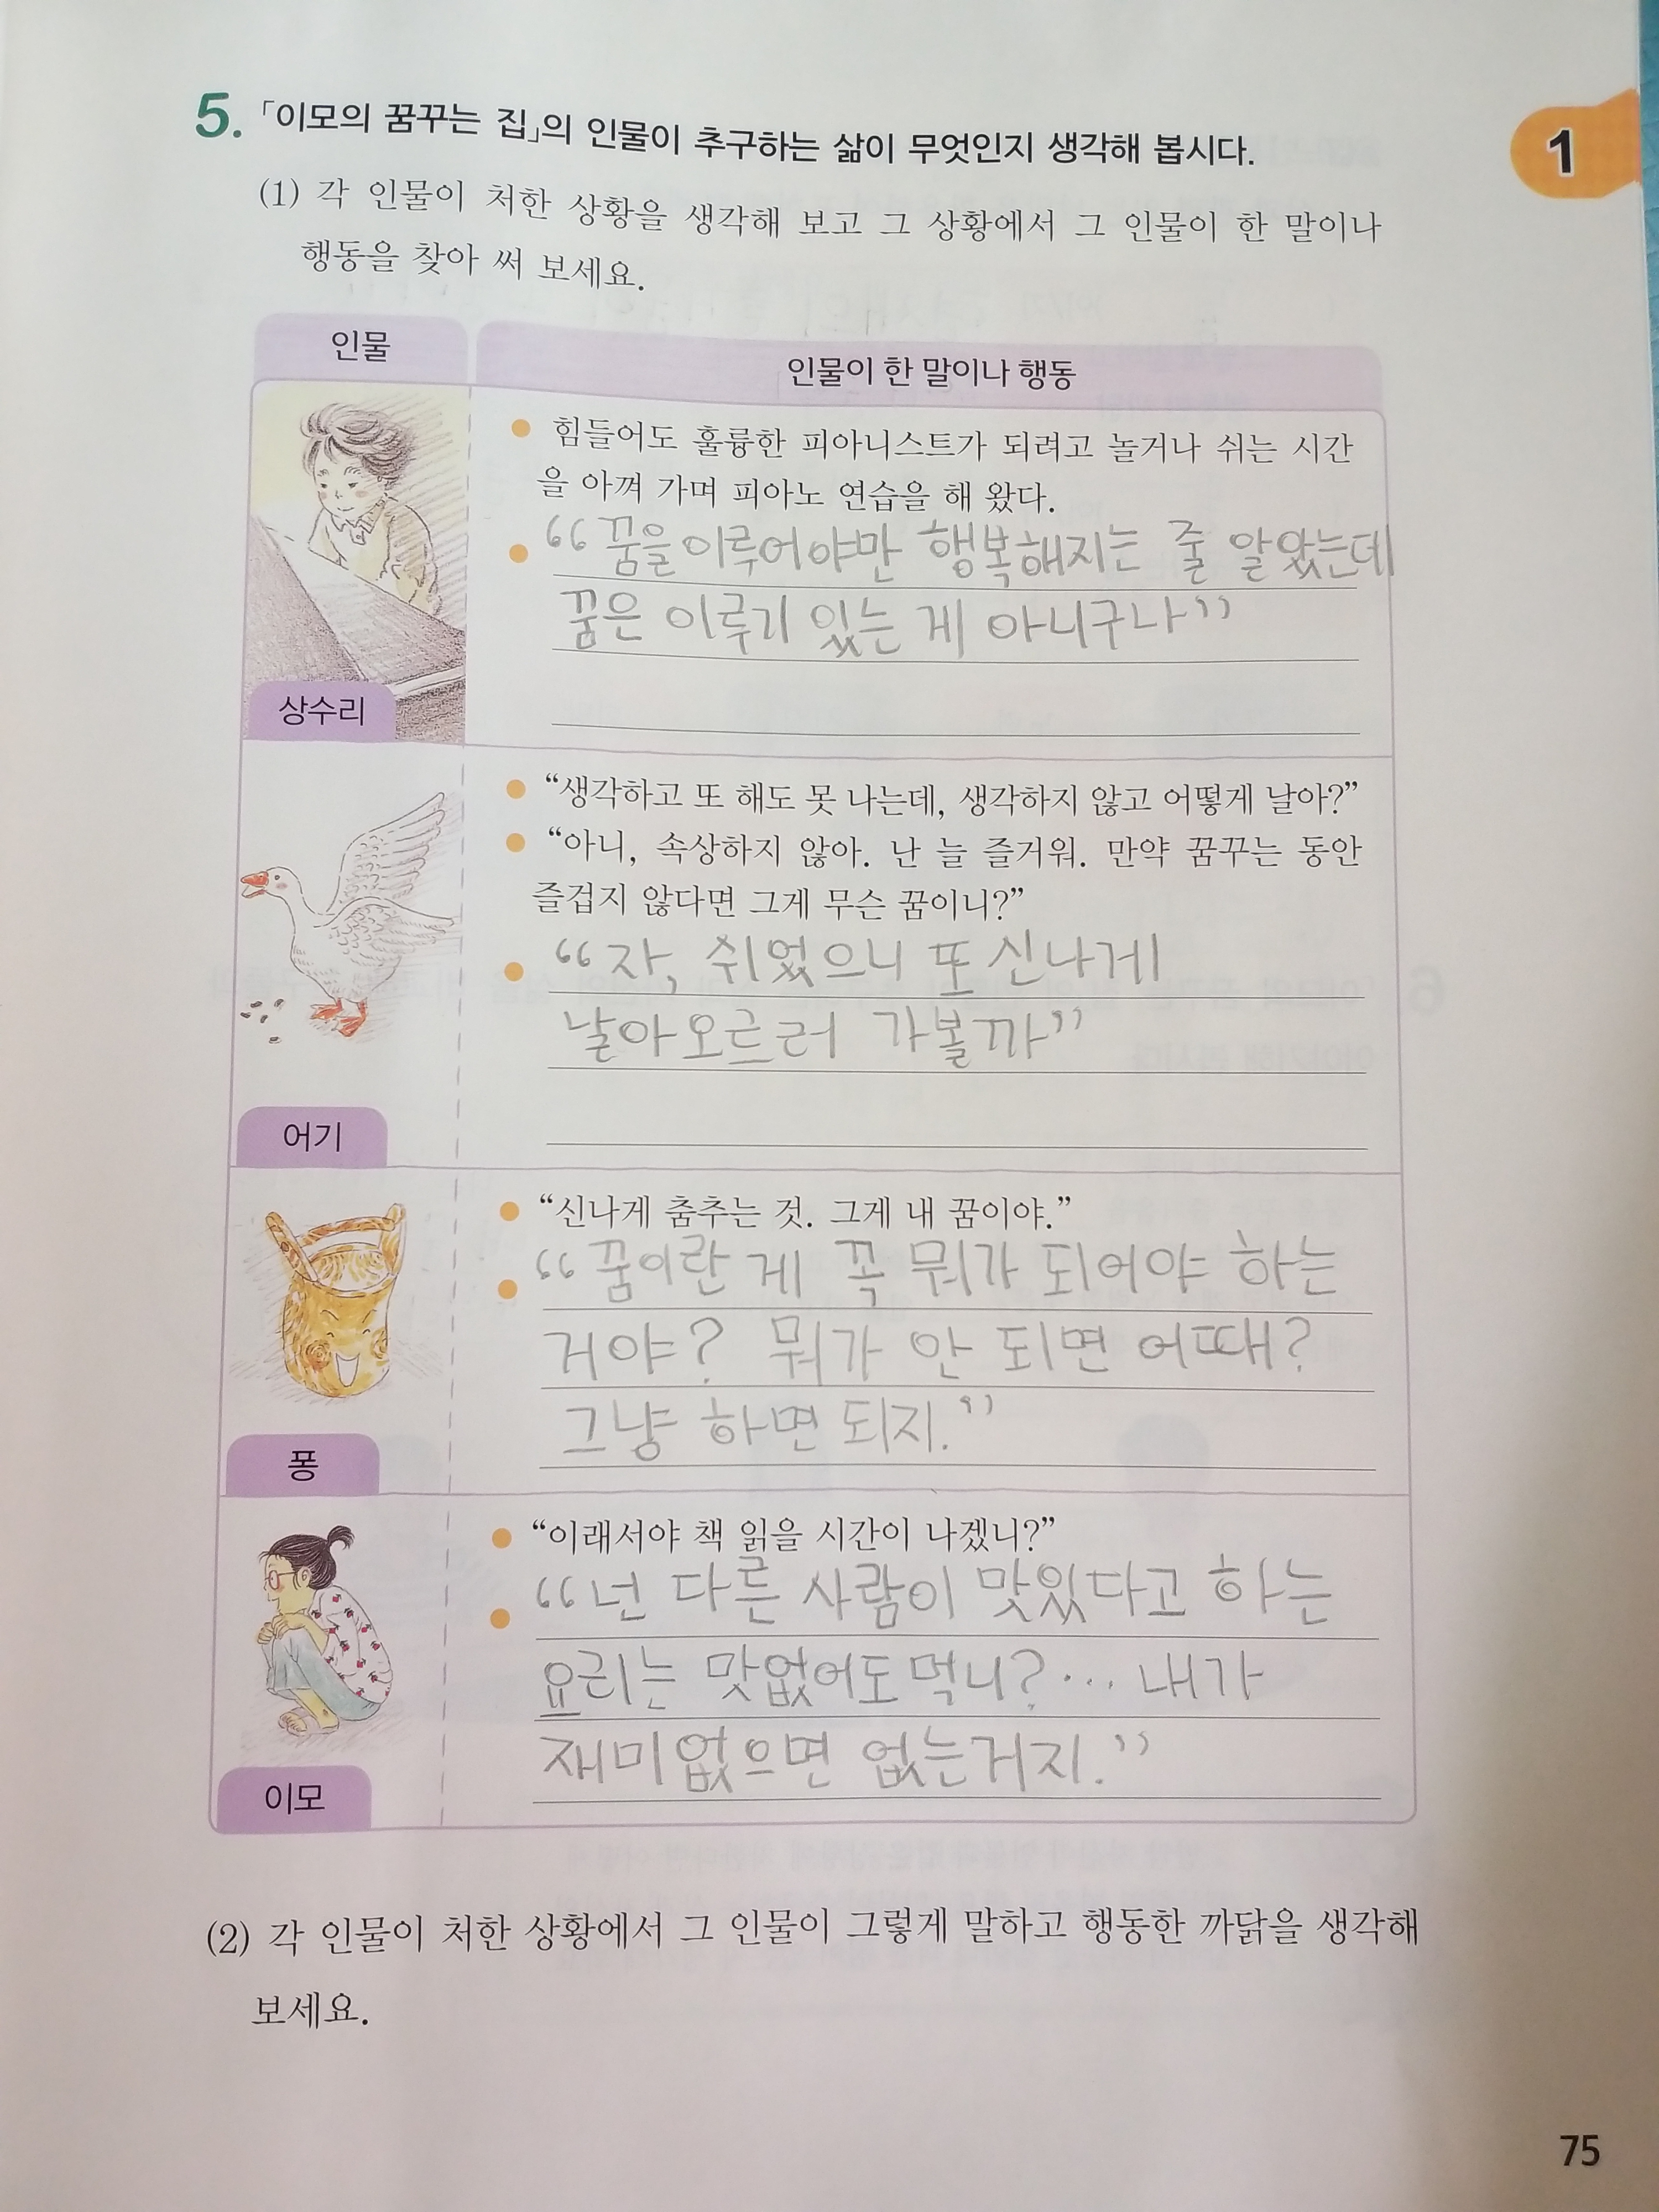 5. 「이모의 꿈꾸는 집」의 인물이 추구하는 삶이 무엇인지 생각해 봅시다.
1
(1) 각 인물이 처한 상황을 생각해 보고 그 상황에서 그 인물이 한 말이나
행동을 찾아 써 보세요.
인물
인물이 한 말이나 행동
힘들어도 훌륭한 피아니스트가 되려고 놀거나 쉬는 시간
을 아껴 가며 피아노 연습을 해 왔다.
“꿈을 이루어야만 행복해지는 줄 알았는데
꿈은 이루기 있는 게 아니구나”
상수리
“생각하고 또 해도 못 나는데, 생각하지 않고 어떻게 날아?”
“아니, 속상하지 않아. 난 늘 즐거워. 만약 꿈꾸는 동안
즐겁지 않다면 그게 무슨 꿈이니?”
“자, 쉬었으니 또 신나게
날아오르러 가볼까”
어기
“신나게 춤추는 것. 그게 내 꿈이야.”
“꿈이란 게 꼭 뭐가 되어야 하는
거야? 뭐가 안 되면 어때?
그냥 하면 되지.”
퐁
“이래서야 책 읽을 시간이 나겠니?”
“넌 다른 사람이 맛있다고 하는
요리는 맛없어도 먹니?… 내가
재미없으면 없는거지.”
이모
(2) 각 인물이 처한 상황에서 그 인물이 그렇게 말하고 행동한 까닭을 생각해
보세요.
75